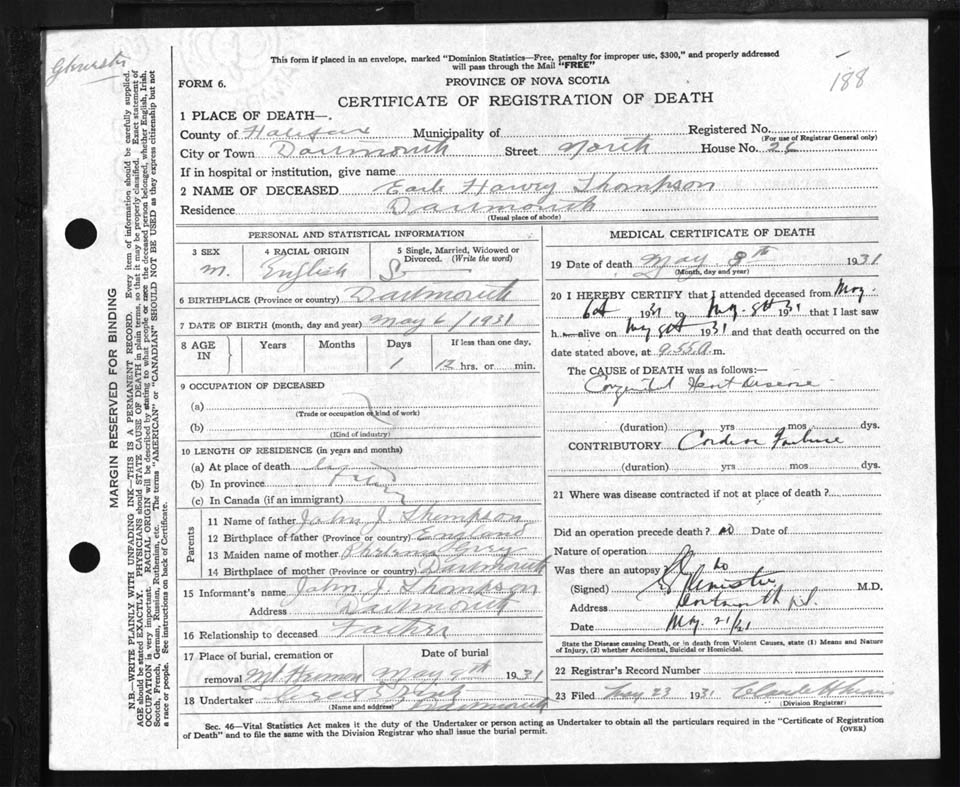 This form if placed in an envelope, marked "Dominion Statistics—Free, penalty for improper use, $300," and properly addressed
will pass through the Mail "FREE"
188
FORM 6.
PROVINCE OF NOVA SCOTIA
CERTIFICATE OF REGISTRATION OF DEATH
MARGIN RESERVED FOR BINDING
N.B.—WRITE PLAINLY WITH UNFADING INK—THIS IS A PERMANENT RECORD. Every item of information should be carefully supplied.
AGE should be stated EXACTLY. PHYSICIANS should STATE CAUSE OF DEATH in plain terms, so that it may be properly classified. Exact statement of
OCCUPATION is very important. RACIAL ORIGIN will be described by stating to what people or race the deceased person belonged, whether English, Irish,
Scotch, French, German, Russian, Ruthenian, etc. The terms "AMERICAN" or "CANADIAN" SHOULD NOT BE USED as they express citizenship but not
a race or people. See instructions on back of Certificate.
1 PLACE OF DEATH—
County of Halifax Municipality of Registered No.
(For use of Registrar General only)
City or Town Dartmouth Street North House No. 26
If in hospital or institution, give name
2 NAME OF DECEASED Earle Harvey Thompson
Residence Dartmouth
(Usual place of abode)
PERSONAL AND STATISTICAL INFORMATION
3 SEX 4 RACIAL ORIGIN 5 Single, Married, Widowed or
Divorced. (Write the word)
M. English S
6 BIRTHPLACE (Province or country) Dartmouth
7 DATE OF BIRTH (month, day and year) May 6/1931
8 AGE IN Years Months Days If less than one day,
1 12 hrs. or min.
9 OCCUPATION OF DECEASED
(a)
(Trade or occupation or kind of work)
(b)
(Kind of industry)
10 LENGTH OF RESIDENCE (in years and months)
(a) At place of death
(b) In province
(c) In Canada (if an immigrant)
Parents
11 Name of father John J. Thompson
12 Birthplace of father (Province or country) England
13 Maiden name of mother
14 Birthplace of mother (Province or country) Dartmouth
15 Informant's name John J. Thompson
Address Dartmouth
16 Relationship to deceased Father
17 Place of burial, cremation or Date of burial
removal Mt Herman May 9th 1931
18 Undertaker
(Name and address) Dartmouth
MEDICAL CERTIFICATE OF DEATH
19 Date of death May 8th 1931
(Month, day and year)
20 I HEREBY CERTIFY that I attended deceased from May
6th 1931 to May 8th 1931 that I last saw
h alive on May 8th 1931 and that death occurred on
the date stated above, at 9.55 A. m.
The CAUSE of DEATH was as follows:—
Congenital Heart Disease
(duration) yrs mos dys.
CONTRIBUTORY Cardiac Failure
(duration) yrs mos dys.
21 Where was disease contracted if not at place of death?
Did an operation precede death? no Date of
Nature of operation
Was there an autopsy? no
(Signed) M.D.
Address Dartmouth N.S.
Date May 21/31
State the Disease causing Death, or in death from Violent Causes, state (1) Means and Nature
of Injury, (2) whether Accidental, Suicidal or Homicidal.
22 Registrar's Record Number
23 Filed May 23 1931
(Division Registrar)
Sec. 46—Vital Statistics Act makes it the duty of the Undertaker or person acting as Undertaker to obtain all the particulars required in the "Certificate of Registration
of Death" and to file the same with the Division Registrar who shall issue the burial permit.
(OVER)